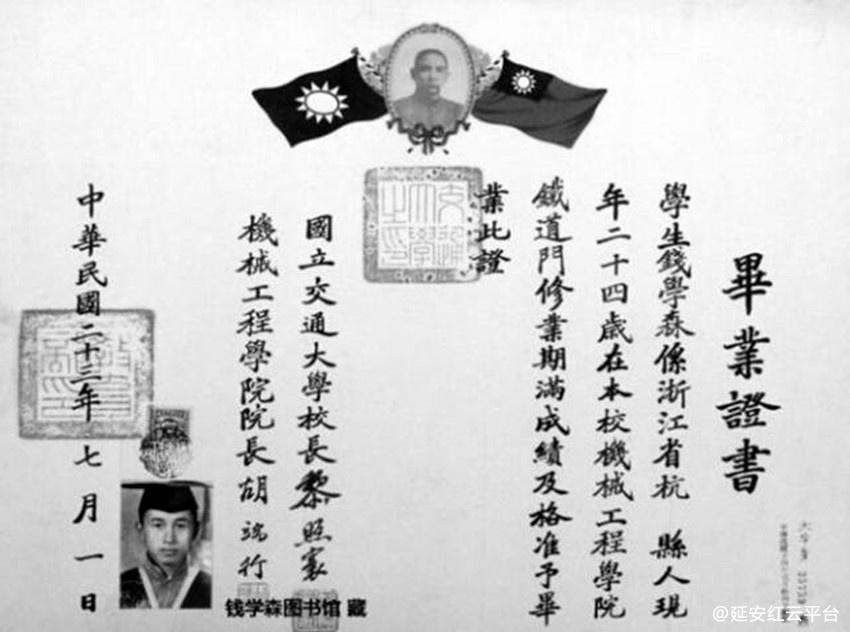 畢業證書
學生錢學森係浙江省杭 縣人現
年二十四歲在本校機械工程學院
鐵道門修業期滿成績及格准予畢
業此證
國立交通大學校長黎照寰
機械工程學院院長胡端行
中華民國二十三年七月一日
交通
大學
之印
钱学森图书馆 藏
@延安红云平台